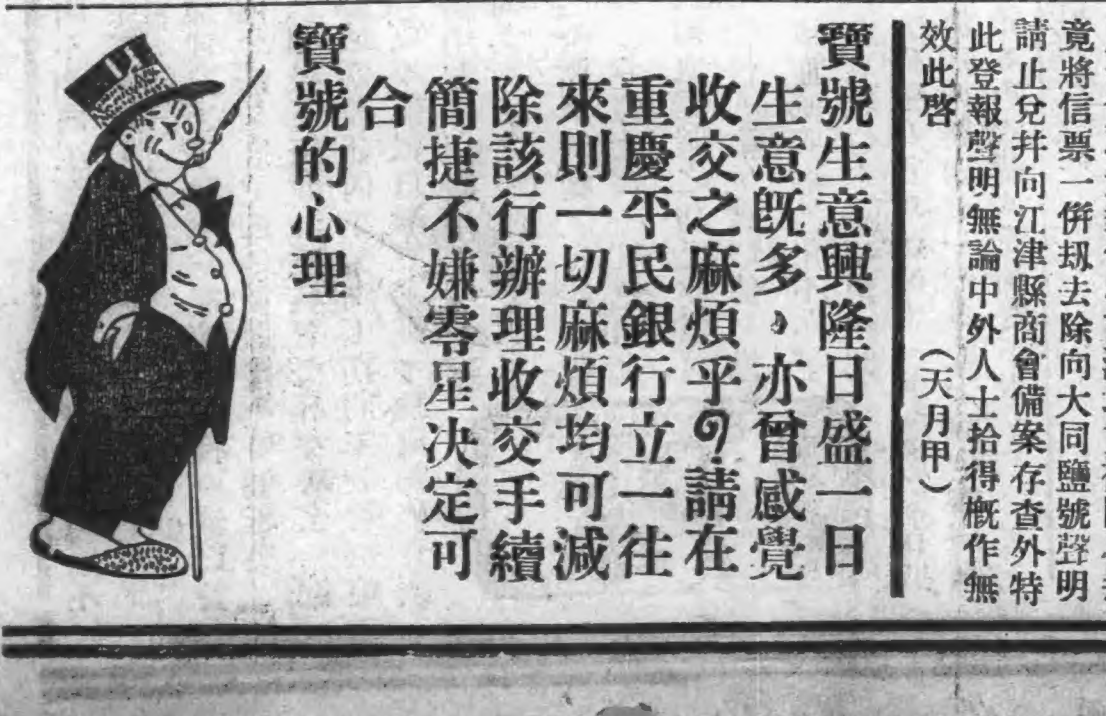 竟將信票一併刼去除向大同鹽號聲明
請止兌幷向江津縣商會備案存查外特
此登報聲明無論中外人士拾得概作無
效此啓
（天月甲）
寶號生意興隆日盛一日
生意旣多，亦曾感覺
收交之麻煩乎？請在
重慶平民銀行立一往
來則一切麻煩均可減
除該行辦理收交手續
簡捷不嫌零星決定可
合
寶號的心理